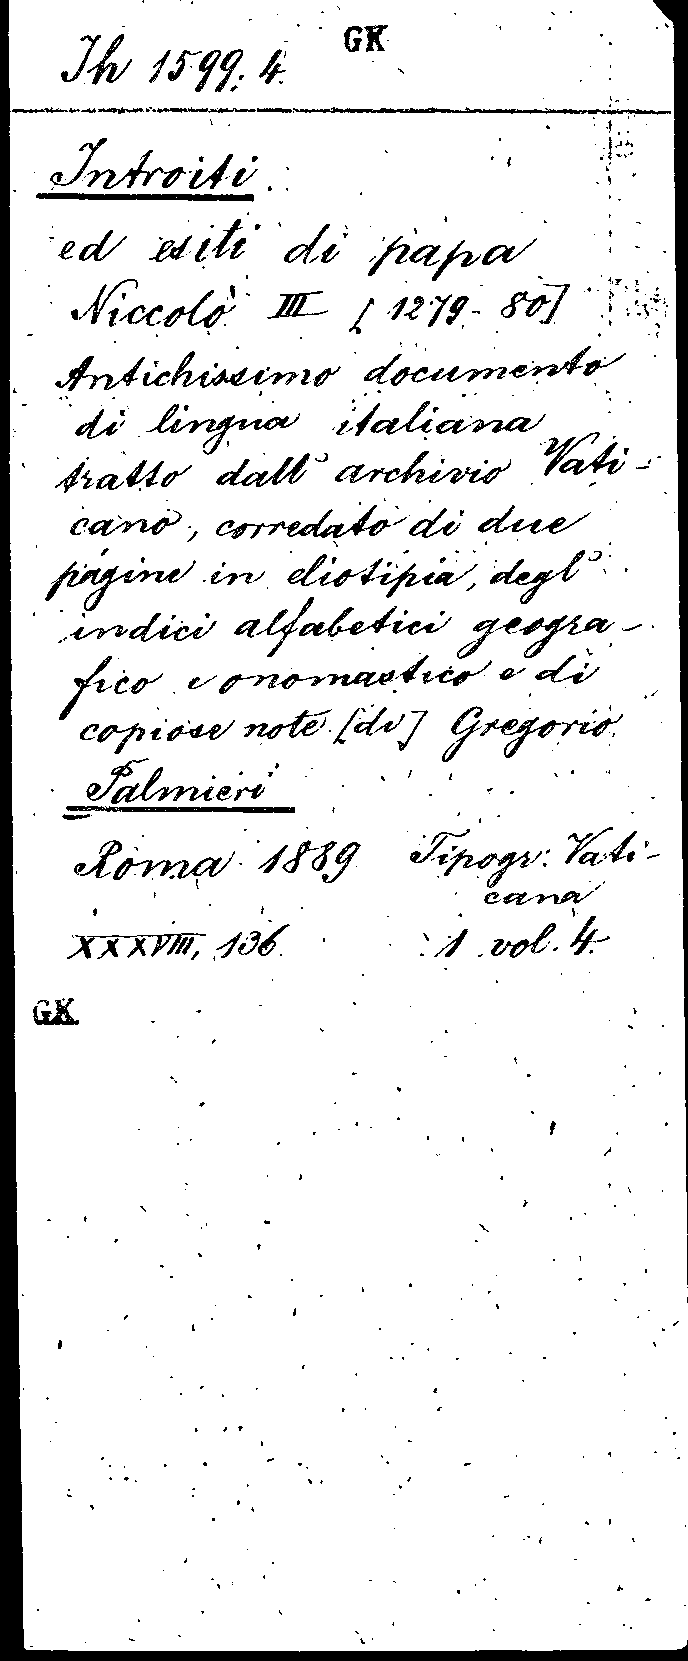 GK
Ih 1599. 4.
Introiti
ed esiti di papa
Niccolò III [1279-80]
Antichissimo documento
di lingua italiana
tratto dall' archivio Vati-
cano, corredato di due
pagine in eliotipia, degl'
indici alfabetici geogra-
fico e onomastico e di
copiose note [di] Gregorio
Palmieri
Roma 1889 Tipogr. Vati-
cana
XXXVIII, 136 1 vol. 4.
GK.